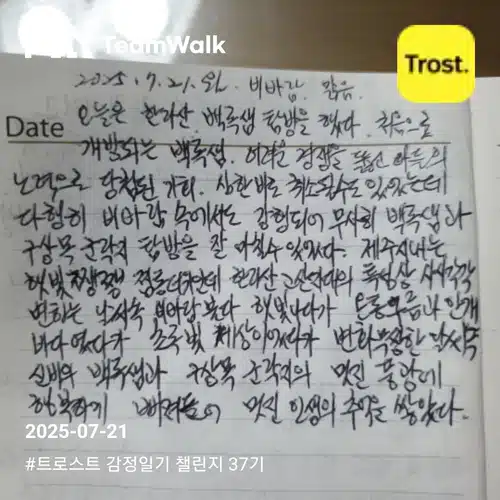 TeamWalk
Trost.
2025. 7. 21. 월. 비바람. 맑음.
Date
오늘은 한라산 백록샘 탐방을 했다. 처음으로
개방되는 백록샘. 어려운 경쟁을 뚫은 아들의
노력으로 당첨된 거라. 상한바로 취소될수도 있었는데
다행히 비바람 속에서도 강행되어 무사히 백록샘과
구상목 군락지 탐방을 잘 마칠수 있었다. 제주시내는
햇빛 쨍쨍 정도더라만데 한라산 고산지대의 특성상 시시각각
변하는 날씨속 비바람 불다 햇빛나다가 온통 구름과 안개
바다였다가 초록빛 세상이었다가 변화무쌍한 날씨속
신비의 백록샘과 구상목 군락지의 멋진 풍광에
행복하게 빠져들어 멋진 인생의 추억을 쌓았다.
2025-07-21
#트로스트 감정일기 챌린지 37기